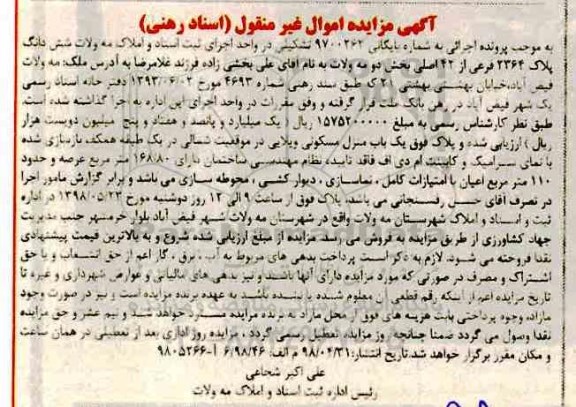 آگهی مزایده اموال غیر منقول (اسناد رهنی)
به موجب پرونده اجرائی به شماره بایگانی ۹۷۰۰۲۶۲ تشکیلی در واحد اجرای ثبت اسناد و املاک مه ولات شش دانگ
پلاک ۲۳۶۴ فرعی از ۴۲ اصلی بخش دو مه ولات به نام آقای علی بخشی زاده فرزند غلامرضا به آدرس ملک: مه ولات
فیض آباد،خیابان بهشتی،بهشتی ۲۱ ک طبق سند رهنی شماره ۴۶۹۳ مورخ ۱۳۹۳/۰۶/۰۲ دفتر خانه اسناد رسمی
یک شهر فیض آباد در رهن بانک ملت قرار گرفته و وفق مقررات در واحد اجرای این اداره به اجرا گذاشته شده است.
طبق نظر کارشناس رسمی به مبلغ ۱۵۷۵۲۰۰۰۰۰ ریال ( یک میلیارد و پانصد و هفتاد و پنج میلیون دویست هزار
ریال ) ارزیابی شده و پلاک فوق یک باب منزل مسکونی ویلایی در موقعیت شمالی در یک طبقه همکف بازسازی شده
با نمای سرامیک و کابینت ام دی اف فاقد تاییده نظام مهندسی ساختمان دارای ۱۶۸/۸۰ متر مربع عرصه و حدود
۱۱۰ متر مربع اعیان با امتیازات کامل ، نماسازی ، دیوار کشی ، محوطه سازی می باشد و برابر گزارش مامور اجرا
در تصرف آقای حسن رفسنجانی می باشد، پلاک فوق از ساعت ۹ الی ۱۲ روز دوشنبه مورخ ۱۳۹۸/۰۵/۲۳ در اداره
ثبت و اسناد و املاک شهرستان مه ولات واقع در شهرستان مه ولات شهر فیض آباد بلوار خرمشهر جنب مدیریت
جهاد کشاورزی از طریق مزایده به فروش می رسد. مزایده از مبلغ ارزیابی شده شروع و به بالاترین قیمت پیشنهادی
نقدا فروخته می شود. لازم به ذکر است پرداخت بدهی های مربوط به آب ، برق ، گاز اعم از حق انشعاب و یا حق
اشتراک و مصرف در صورتی که مورد مزایده دارای آنها باشد و نیز بدهی های مالیاتی و عوارض شهرداری و غیره تا
تاریخ مزایده اعم از اینکه رقم قطعی آن معلوم شده یا نشده باشد به عهده برنده مزایده است و نیز در صورت وجود
مازاد، وجوه پرداختی بابت هزینه های فوق از محل مازاد به برنده مزایده مسترد خواهد شد و نیم عشر و حق مزایده
نقدا وصول می گردد ضمنا چنانچه روز مزایده، تعطیل رسمی گردد ، مزایده روز اداری بعد از تعطیلی در همان ساعت
و مکان مقرر برگزار خواهد شد.تاریخ انتشار:۹۸/۰۴/۳۱ م الف: ۶/۹۸/۴۶ آ-۹۸۰۵۲۶۶
علی اکبر شجاعی
رئیس اداره ثبت اسناد و املاک مه ولات